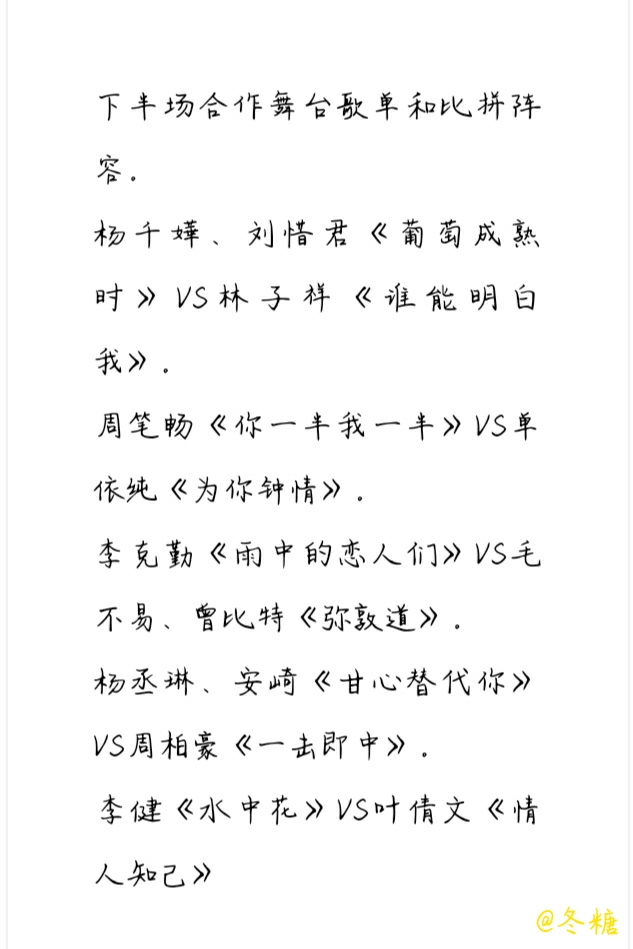 下半场合作舞台歌单和比拼阵
容.
杨千嬅、刘惜君《葡萄成熟
时》VS林子祥《谁能明白
我》.
周笔畅《你一半我一半》VS单
依纯《为你钟情》.
李克勤《雨中的恋人们》VS毛
不易、曾比特《弥敦道》.
杨丞琳、安崎《甘心替代你》
VS周柏豪《一击即中》.
李健《水中花》VS叶倩文《情
人知己》
@冬糖